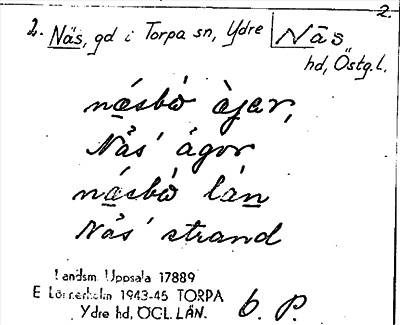 2.
2. Näs, gd i Torpa sn, Ydre
Näs
hd, Östg.l.
Näs' ägor
Näs' strand
Landsm. Uppsala 17889
E Lönnerholm 1943-45 TORPA
Ydre hd, ÖGL. LÄN.
b. P.